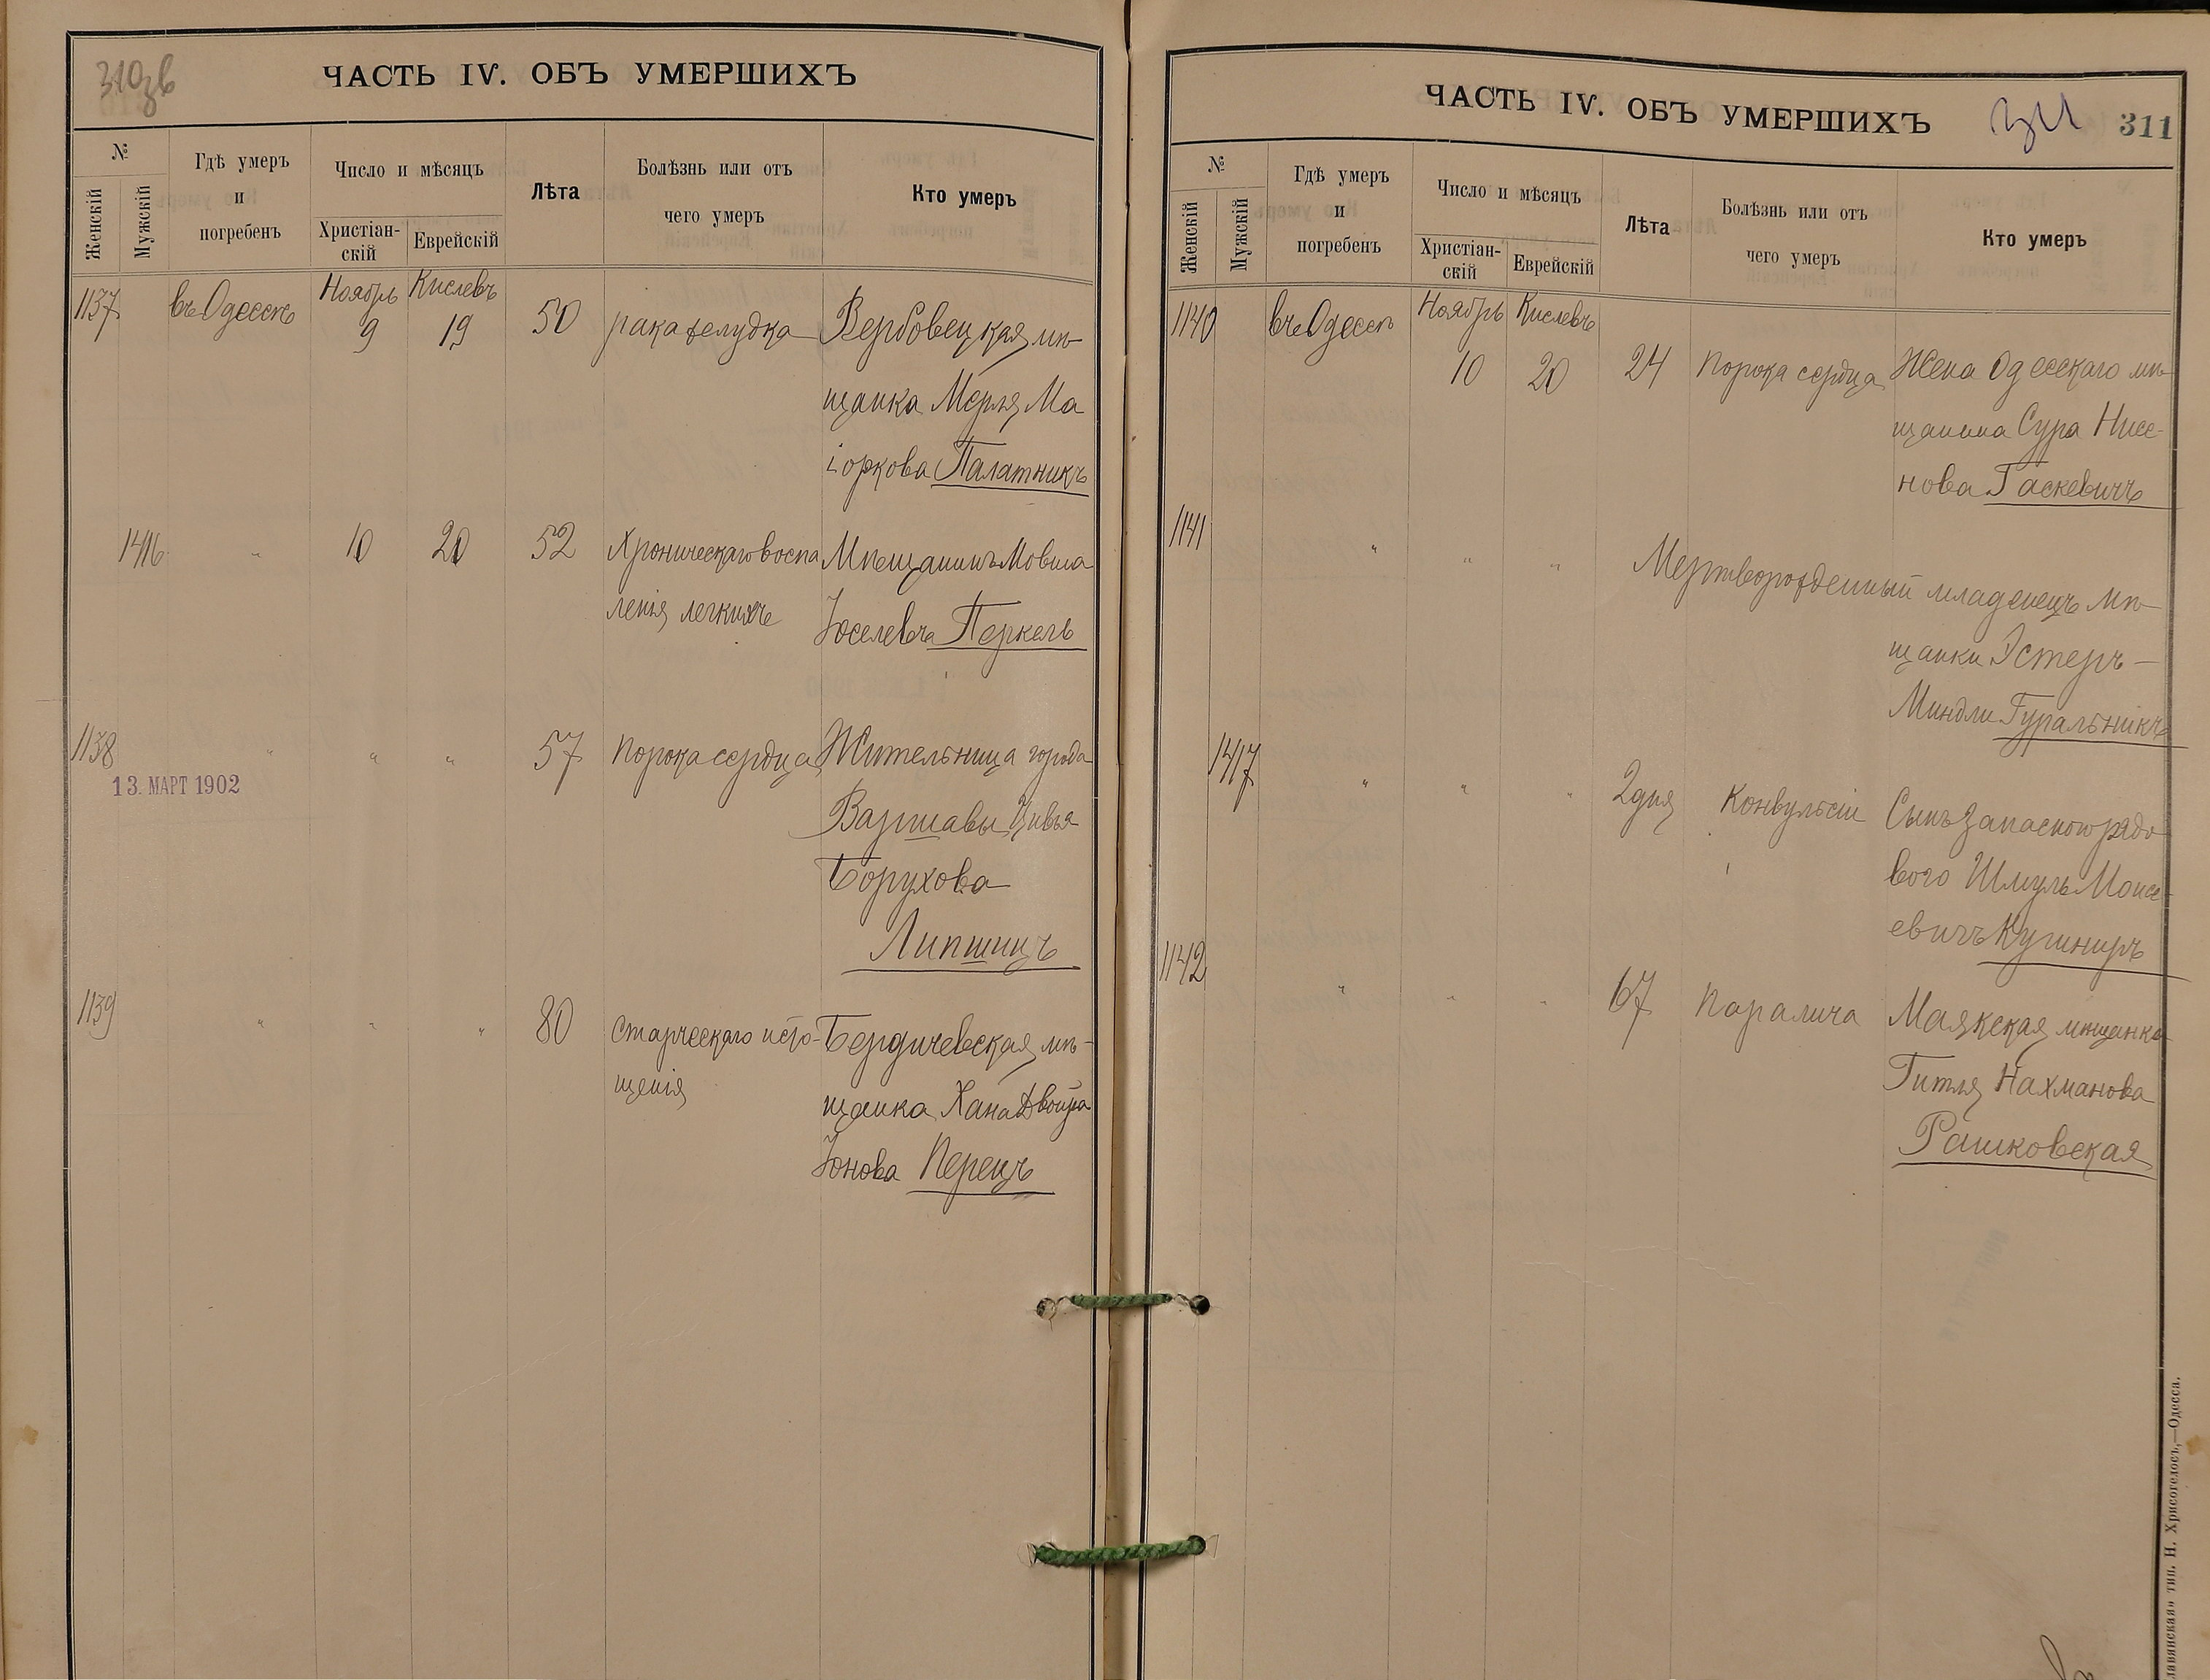 310зв
ЧАСТЬ IV. ОБЪ УМЕРШИХЪ
№
Женскій
Мужскій
Гдѣ умеръ
и
погребенъ
Число и мѣсяцъ
Христіан-
скій
Еврейскій
Лѣта
Болѣзнь или отъ
чего умеръ
Кто умеръ
1137 въ Одессѣ Ноябрь 9 Кислевъ 19 50 рака желудка Вербовецкая мѣ-
щанка Мерля Ма
іоркова Палатникъ
1416 " 10 20 52 Хроническаго воспа Мѣщанинъ Мовша
ленія легкихъ Іоселевъ Перкель
1138 " " " 57 Порока сердца Жительница города
13. МАРТ 1902
Варшавы Цивья
Борухова
Липшицъ
1139 " " " 80 Старческаго исто- Бердичевская мѣ-
щенія щанка Хана Двойра
Іонова Перецъ
ЧАСТЬ IV. ОБЪ УМЕРШИХЪ
311
311
№
Женскій
Мужскій
Гдѣ умеръ
и
погребенъ
Число и мѣсяцъ
Христіан-
скій
Еврейскій
Лѣта
Болѣзнь или отъ
чего умеръ
Кто умеръ
1140 въ Одессѣ Ноябрь 10 Кислевъ 20 24 Порока сердца Жена Одесскаго мѣ-
щанина Сура Нисе-
нова Гаскевичъ
1141 " " " Мертворожденный младенецъ мѣ-
щанки Эстеръ-
Миндли Гуральникъ
1417 " " " 2 дня Конвульсіи Сынъ запасного рядо
вого Шмуль Моисе-
евичъ Кушниръ
1142 " " " 67 Паралича Маякская мѣщанка
Гитля Нахманова
Рашковская
тип. Н. Хрисогелосъ,—Одесса.